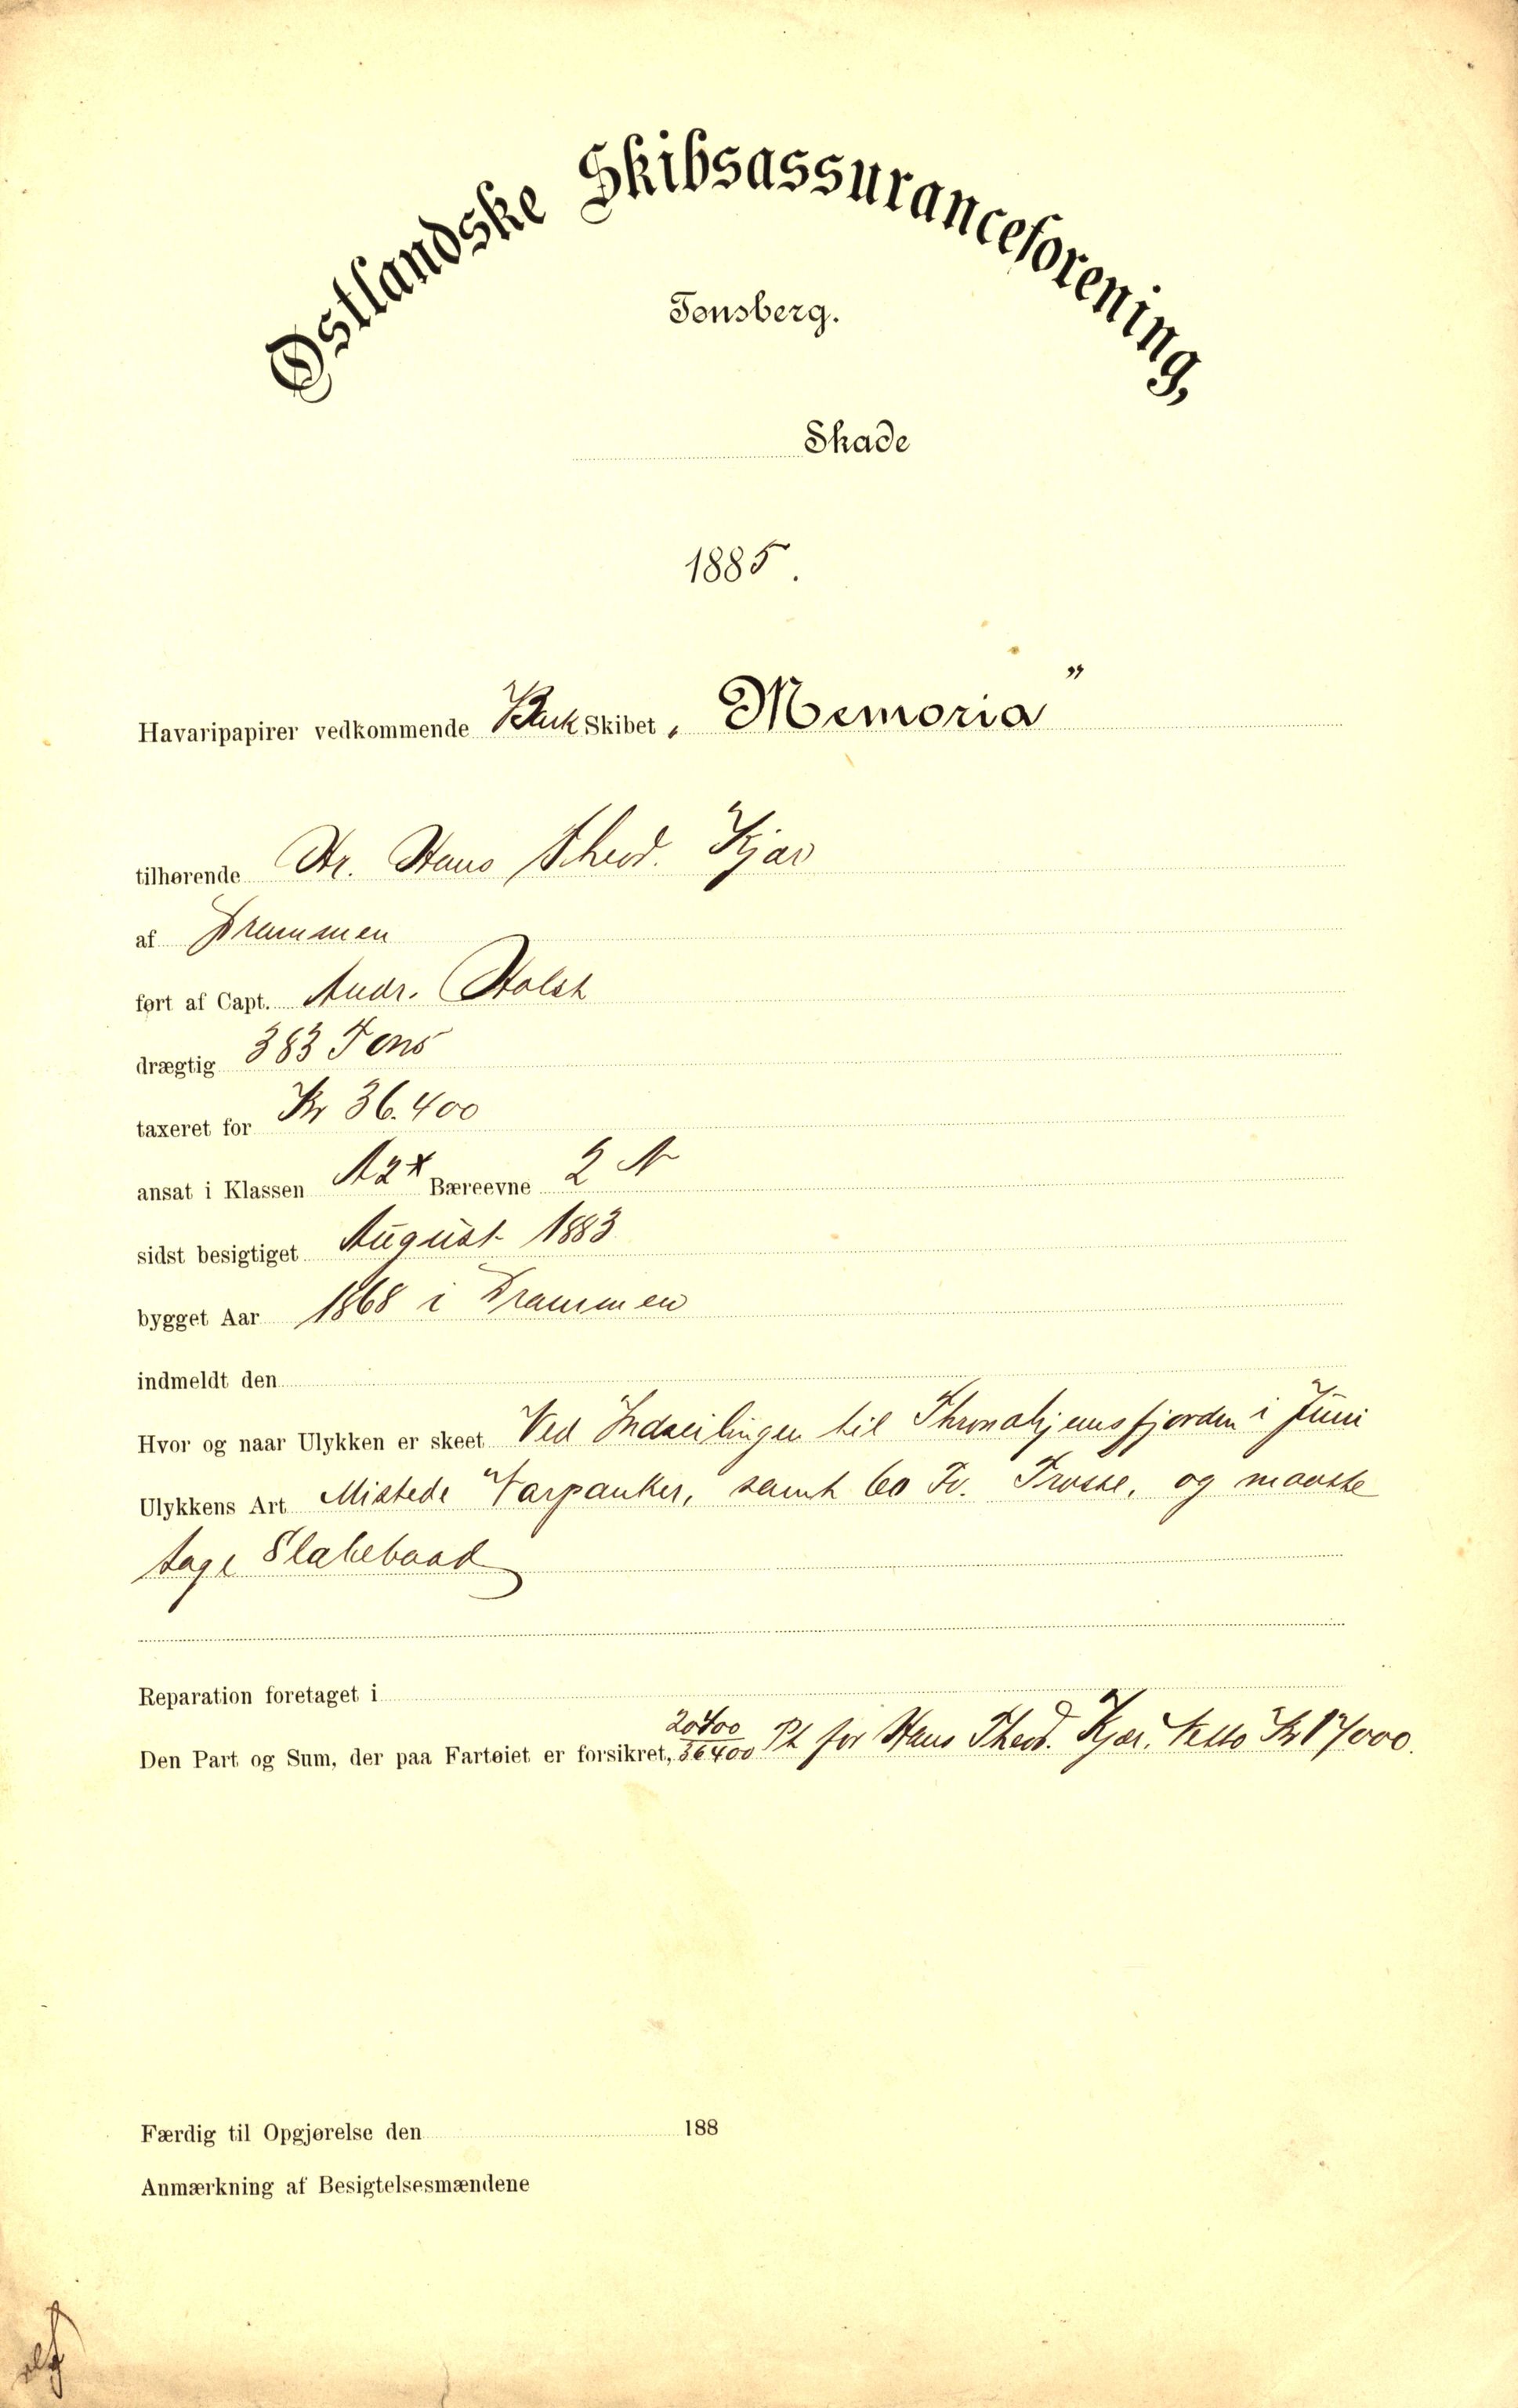 Østlandske Skibsassuranceforening,
Tønsberg.
Skade
1885.
Havaripapirer vedkommende Bark Skibet „Memoria”
tilhørende Hr. Hans Theod. Kjær
af Drammen
ført af Capt. Andr. Holst
drægtig 383 Tons
taxeret for Kr 36.400
ansat i Klassen A2x Bæreevne 2 N
sidst besigtiget August 1883
bygget Aar 1868 i Drammen
indmeldt den
Hvor og naar Ulykken er skeet Ved Indseilingen til Throndhjemsfjorden i Juni
Ulykkens Art Mistede Varpanker, samt 60 Fv. Trosse, og maatte
tage Slæbebaad
Reparation foretaget i
Den Part og Sum, der paa Fartøiet er forsikret, 20400/36400 Pt for Hans Theod. Kjær. Netto Kr 17000.
Færdig til Opgjørelse den 188
Anmærkning af Besigtelsesmændene